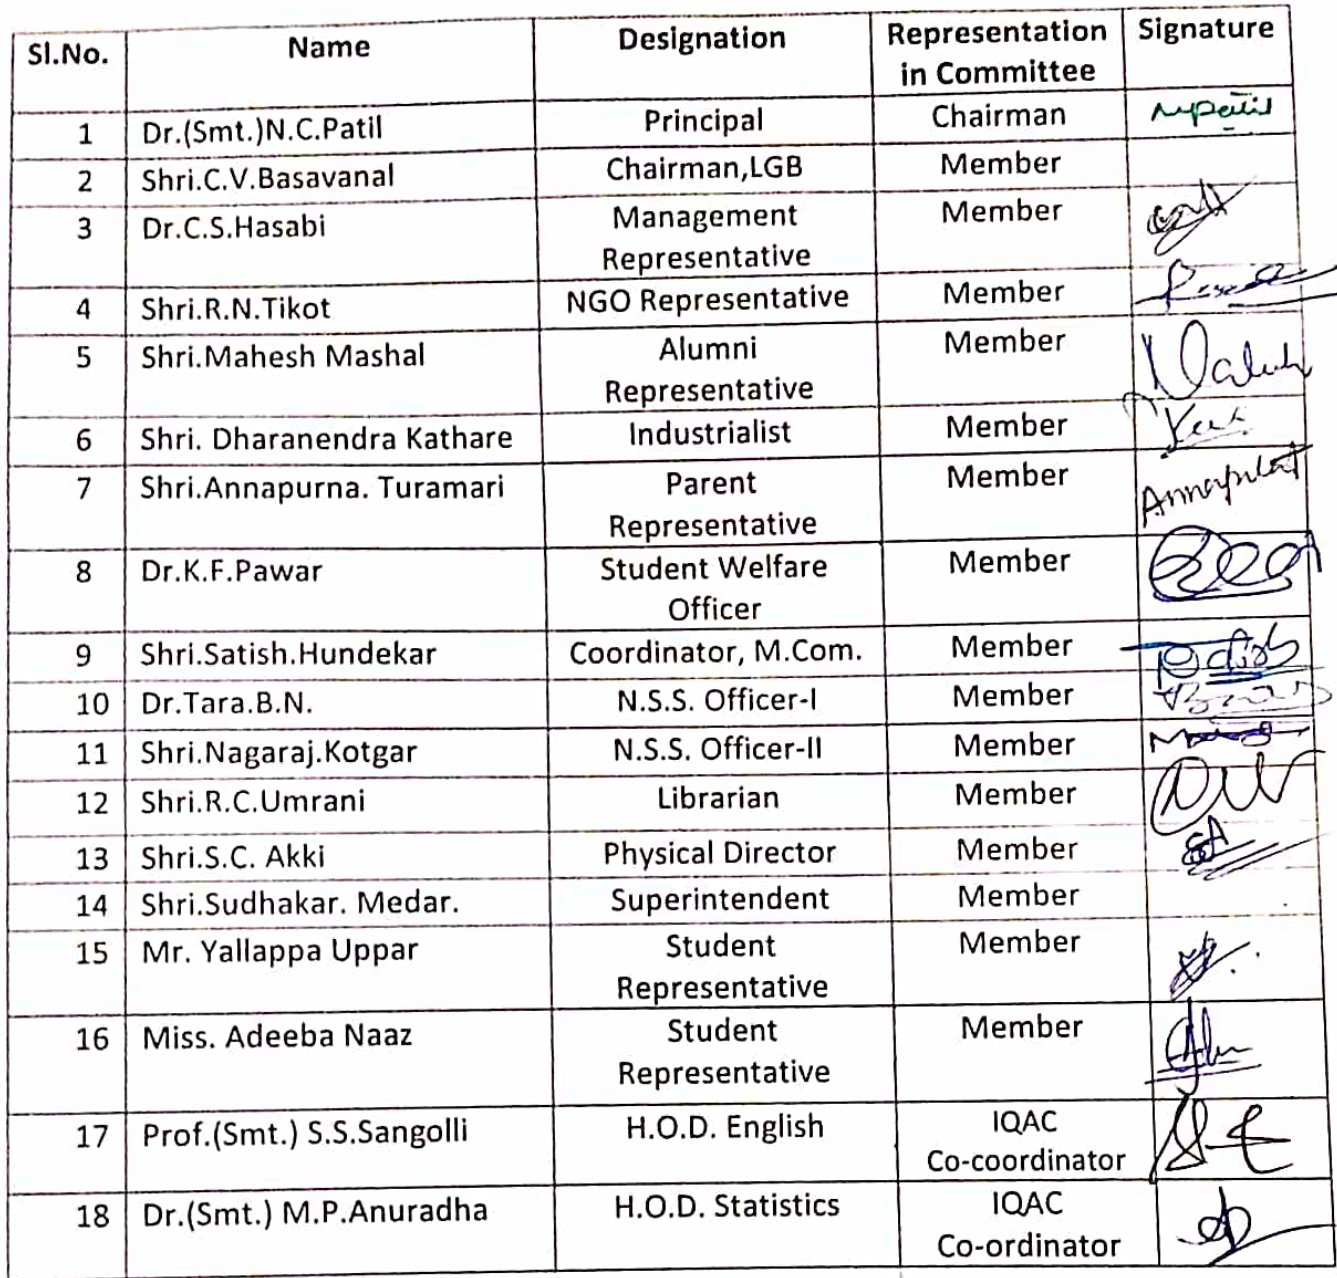 Sl.No. Name Designation Representation in Committee Signature
1 Dr.(Smt.)N.C.Patil Principal Chairman
2 Shri.C.V.Basavanal Chairman,LGB Member
3 Dr.C.S.Hasabi Management Representative Member
4 Shri.R.N.Tikot NGO Representative Member
5 Shri.Mahesh Mashal Alumni Representative Member
6 Shri. Dharanendra Kathare Industrialist Member
7 Shri.Annapurna. Turamari Parent Representative Member
8 Dr.K.F.Pawar Student Welfare Officer Member
9 Shri.Satish.Hundekar Coordinator, M.Com. Member
10 Dr.Tara.B.N. N.S.S. Officer-I Member
11 Shri.Nagaraj.Kotgar N.S.S. Officer-II Member
12 Shri.R.C.Umrani Librarian Member
13 Shri.S.C. Akki Physical Director Member
14 Shri.Sudhakar. Medar. Superintendent Member
15 Mr. Yallappa Uppar Student Representative Member
16 Miss. Adeeba Naaz Student Representative Member
17 Prof.(Smt.) S.S.Sangolli H.O.D. English IQAC Co-coordinator
18 Dr.(Smt.) M.P.Anuradha H.O.D. Statistics IQAC Co-ordinator